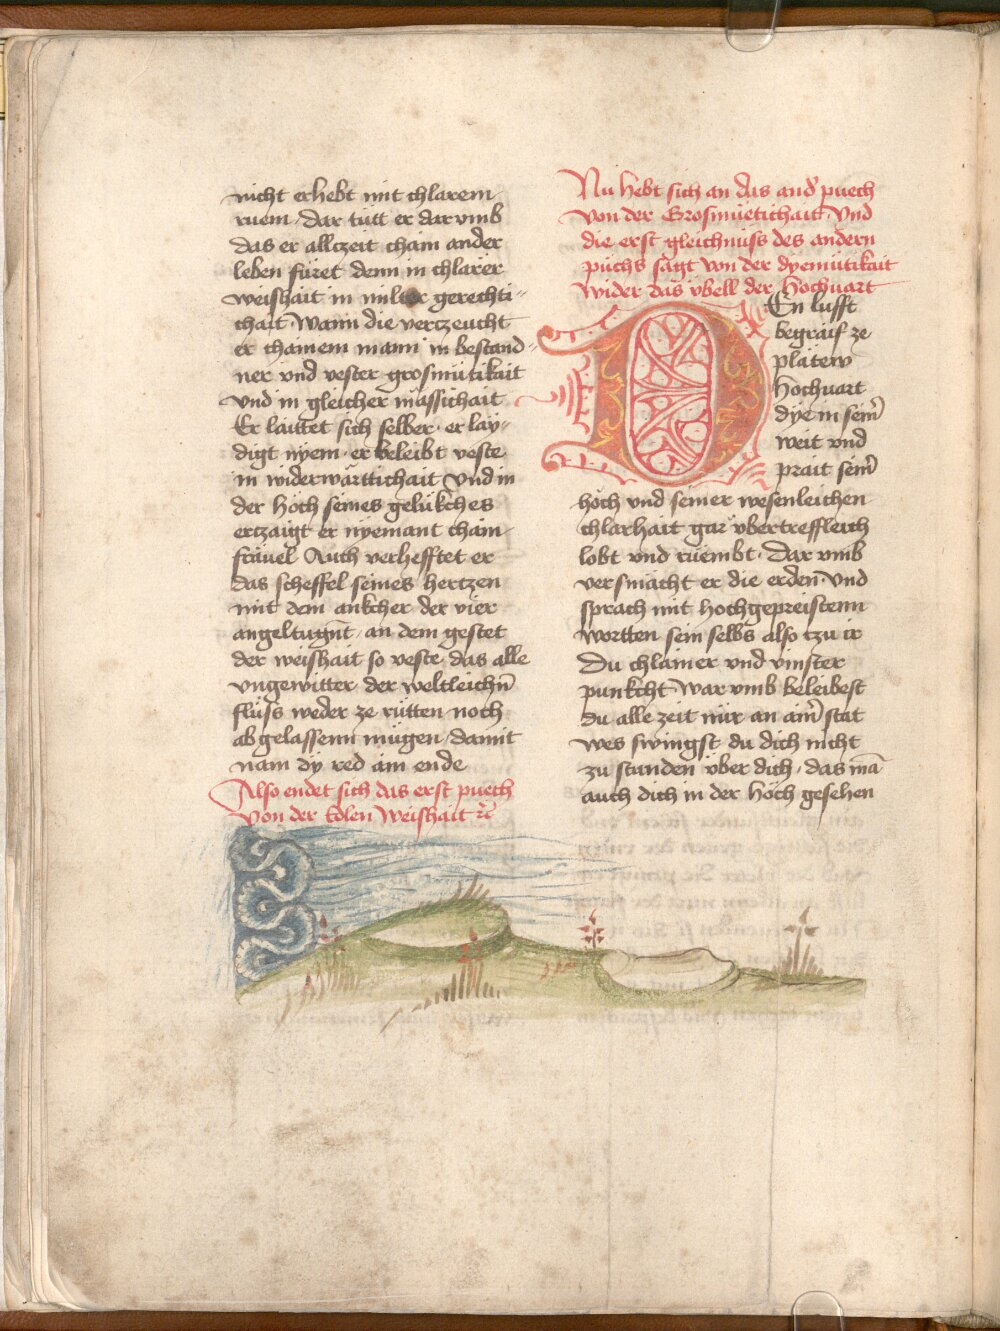 nicht erhebt mit chlarem
ruem · Dar tutt er dar vmb
das er allczeit chain ander
leben füret denn in chlarer
weishait in milter gerechti-
chait · Wann die verczeucht
er chainem mann in bestand-
ner vnd vester grosmütikait
vnd in gleicher mässichait
Er lautet sich selber · er lay-
digt nyem · er beleibt veste
in widerwärttichait Vnd in
der höch seines gelükches
erczaigt er nyemant chain
frauel Auch verhefftet er
das scheffel seines hertzen
mit dem ankcher der vier
angeltugnt · an dem gestet
der weishait so veste · das alle
vngewitter der weltleichn̄
flüss weder ze rütten noch
abgelassenn mügen · damit
nam dy red ain ende
Also endet sich das erst puech
Von der Edlen Weishait ꝛc̄
Nu hebt sich an das and̕ puech
von der Grosmuetichait · Vnd
die erst gleichnuss des andern
puchs sagt von der dyemütikait
wider das vbell der Hochuart
DEn lufft
begraif ze
platew
Hochuart
dye in sein̄
weit vnd
prait sein̄
höch vnd seiner wesenleichen
chlarhait gar vbertreffleich
lobt vnd ruembt · Dar vmb
versmächt er die erden · Vnd
sprach mit hochgepreistenn
wortten sein selbs also tzu ir
Du chlainer vnd vinster
punkcht War vmb beleibest
du alle zeit nür an ain̄ stat
wes swingst du dich nicht
zu stunden über dich · das mā
auch dich in der höch gesehen